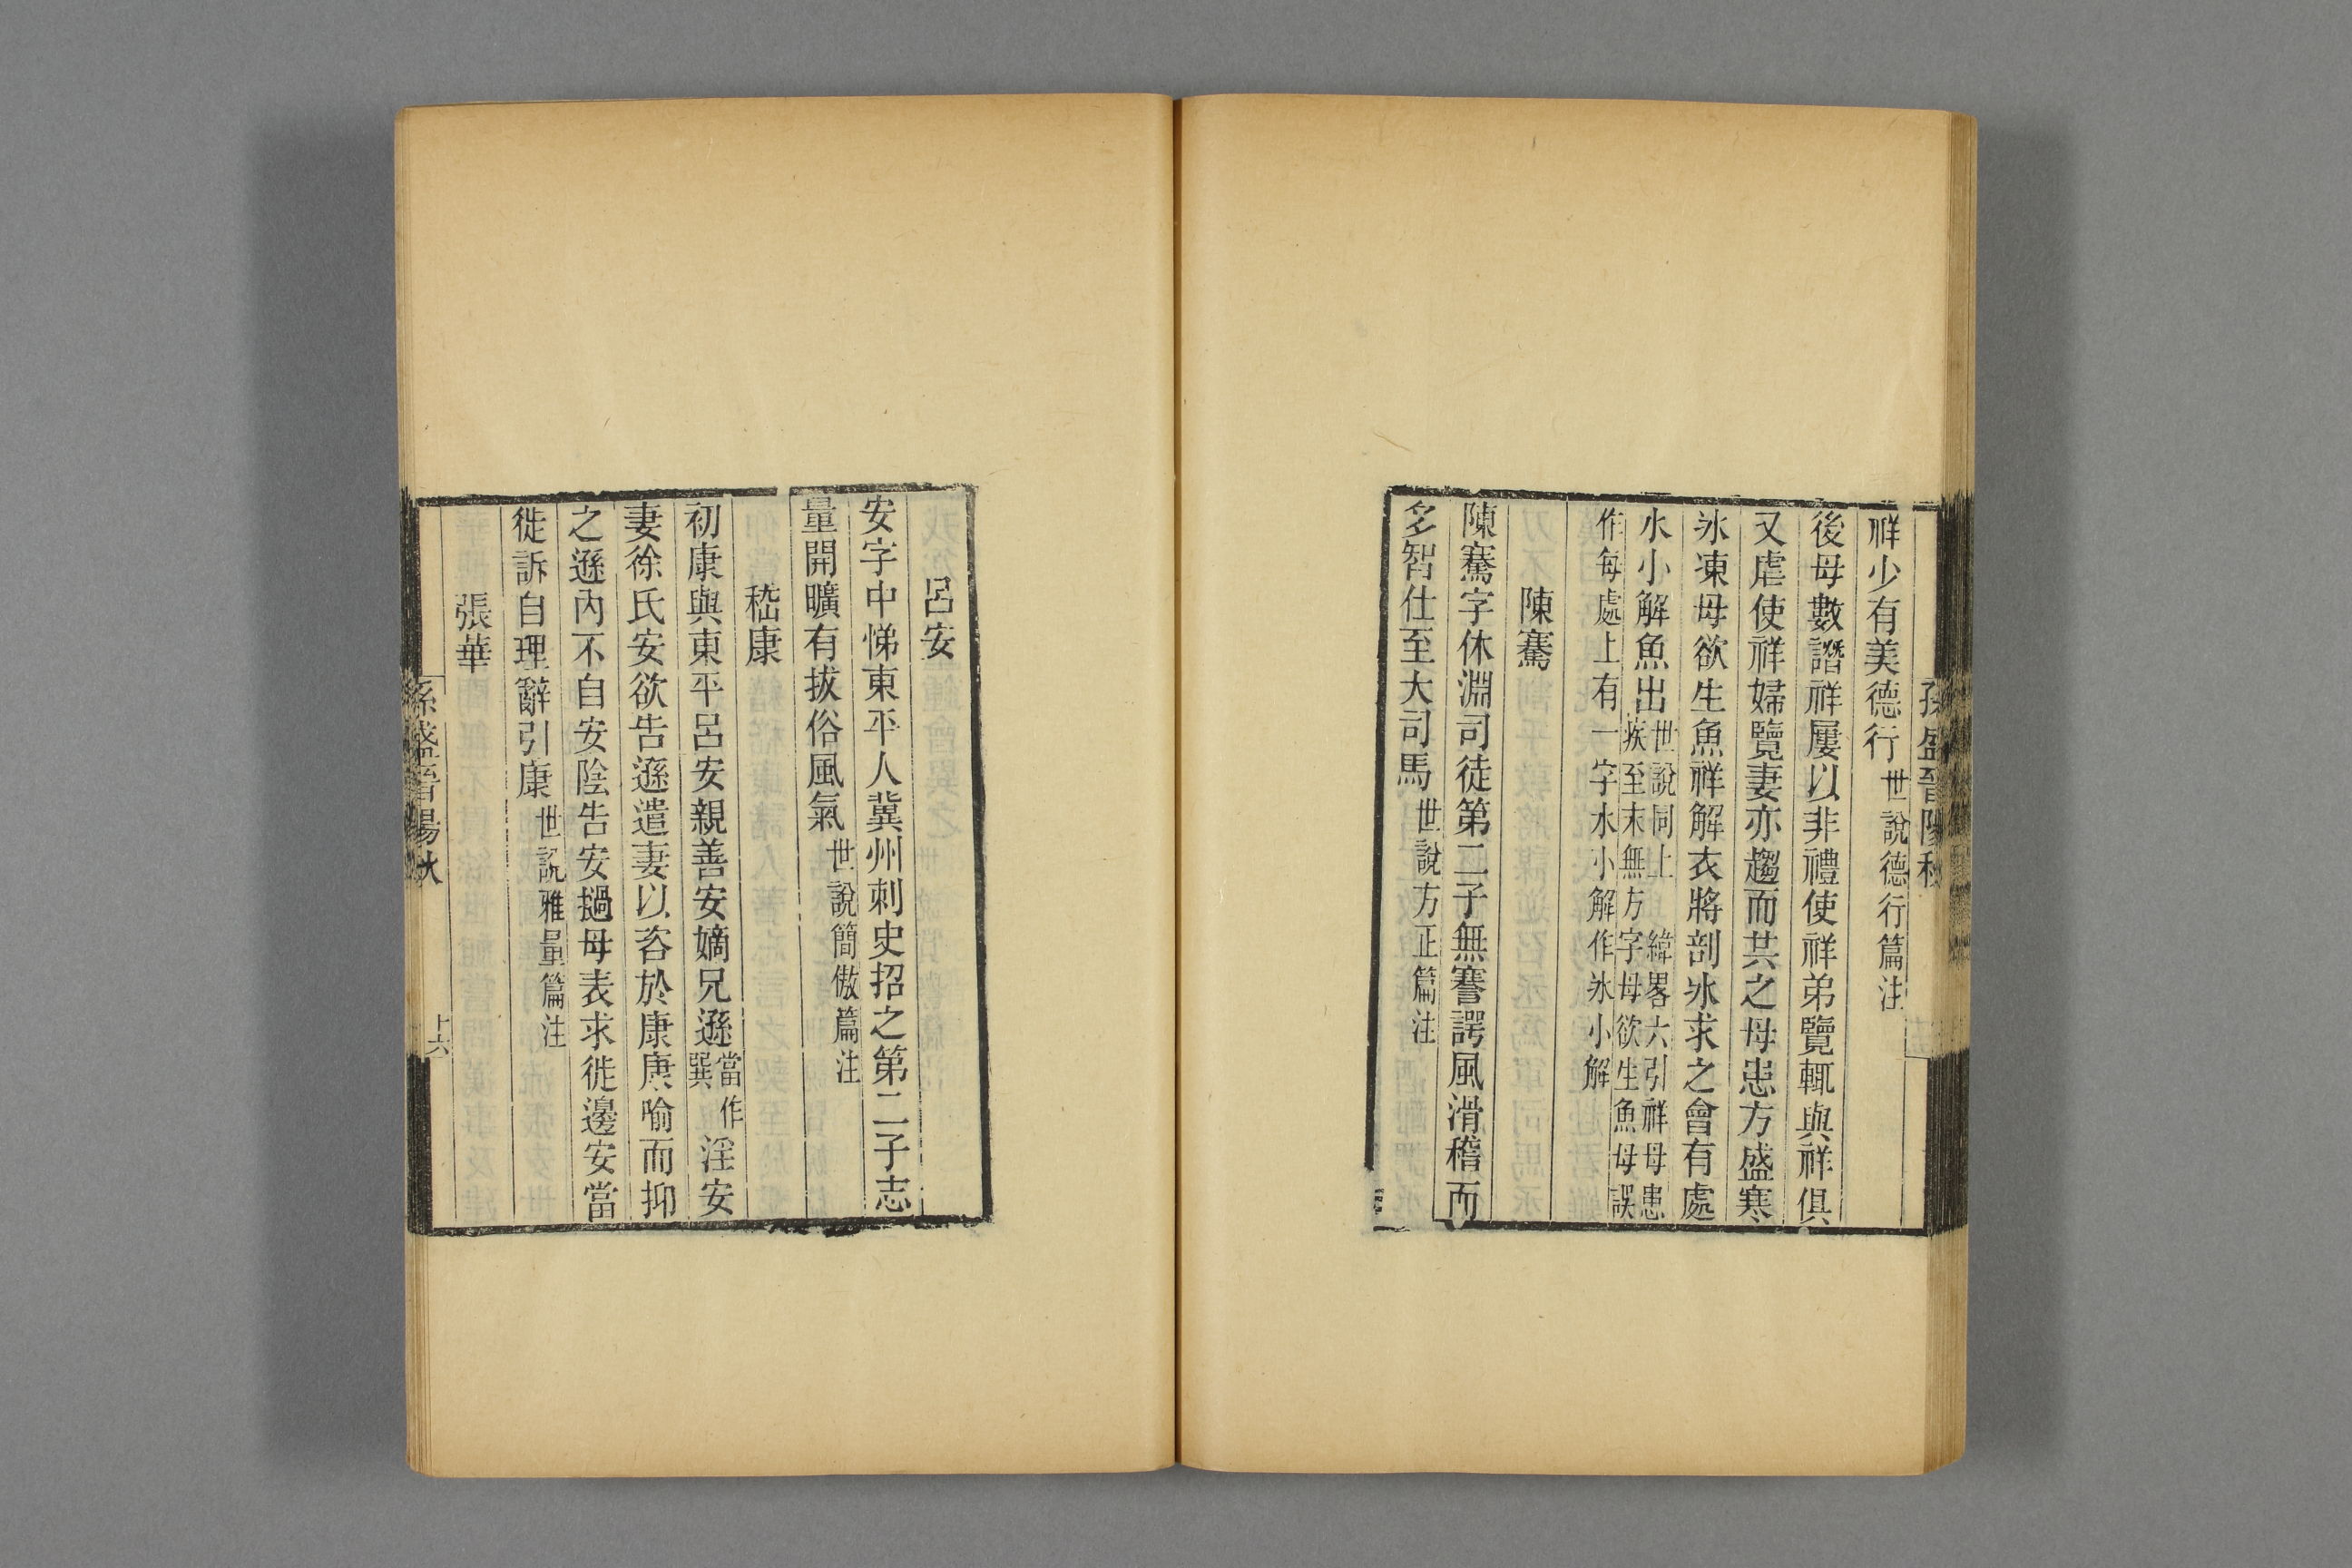 孫盛晉陽秋
祥少有美德行世說德行篇注
後母數譖祥屢以非禮使祥弟覽輒與祥俱
又虐使祥婦覽妻亦趨而共之母患方盛寒
氷凍母欲生魚祥解衣將剖氷求之會有處
氷小解魚出世說同上 緯畧六引祥母患
疾至末無方字母欲生魚母誤
作每處上有一字氷小解作氷小解
陳騫
陳騫字休淵司徒第二子無謇諤風滑稽而
多智仕至大司馬世說方正篇注
呂安
安字中悌東平人冀州刺史招之第二子志
量開曠有拔俗風氣世說簡傲篇注
嵇康
初康與東平呂安親善安嫡兄遜當作巽淫安
妻徐氏安欲告遜遣妻以咨於康康喻而抑
之遜內不自安陰告安撾母表求徙邊安當
徙訴自理辭引康世說雅量篇注
張華
孫盛晉陽秋
十六